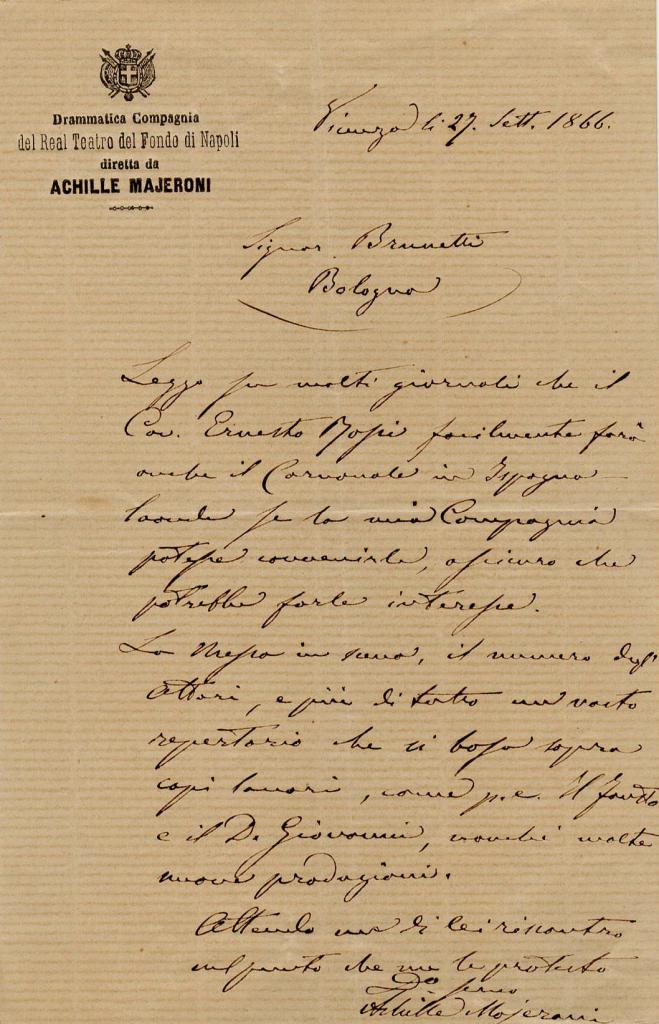 Drammatica Compagnia
del Real Teatro del Fondo di Napoli
diretta da
ACHILLE MAJERONI
Vicenza li 27. Sett. 1866.
Signor Brunetti
Bologna
Leggo su molti giornali che il
Cav. Ernesto Rossi facilmente farà
anche il Carnovale in Ispagna
laonde se la mia Compagnia
potesse convenirle, assicuro che
potrebbe farle interesse.
La Messa in scena, il numero degl'
Attori, e più di tutto un vasto
repertorio che si basa sopra
capi lavori, come p.e. Il Fausto
e il D. Giovanni, nonchè molte
nuove produzioni.
Attendo un di lei riscontro
nel punto che me le protesto
Do servo
Achille Majeroni